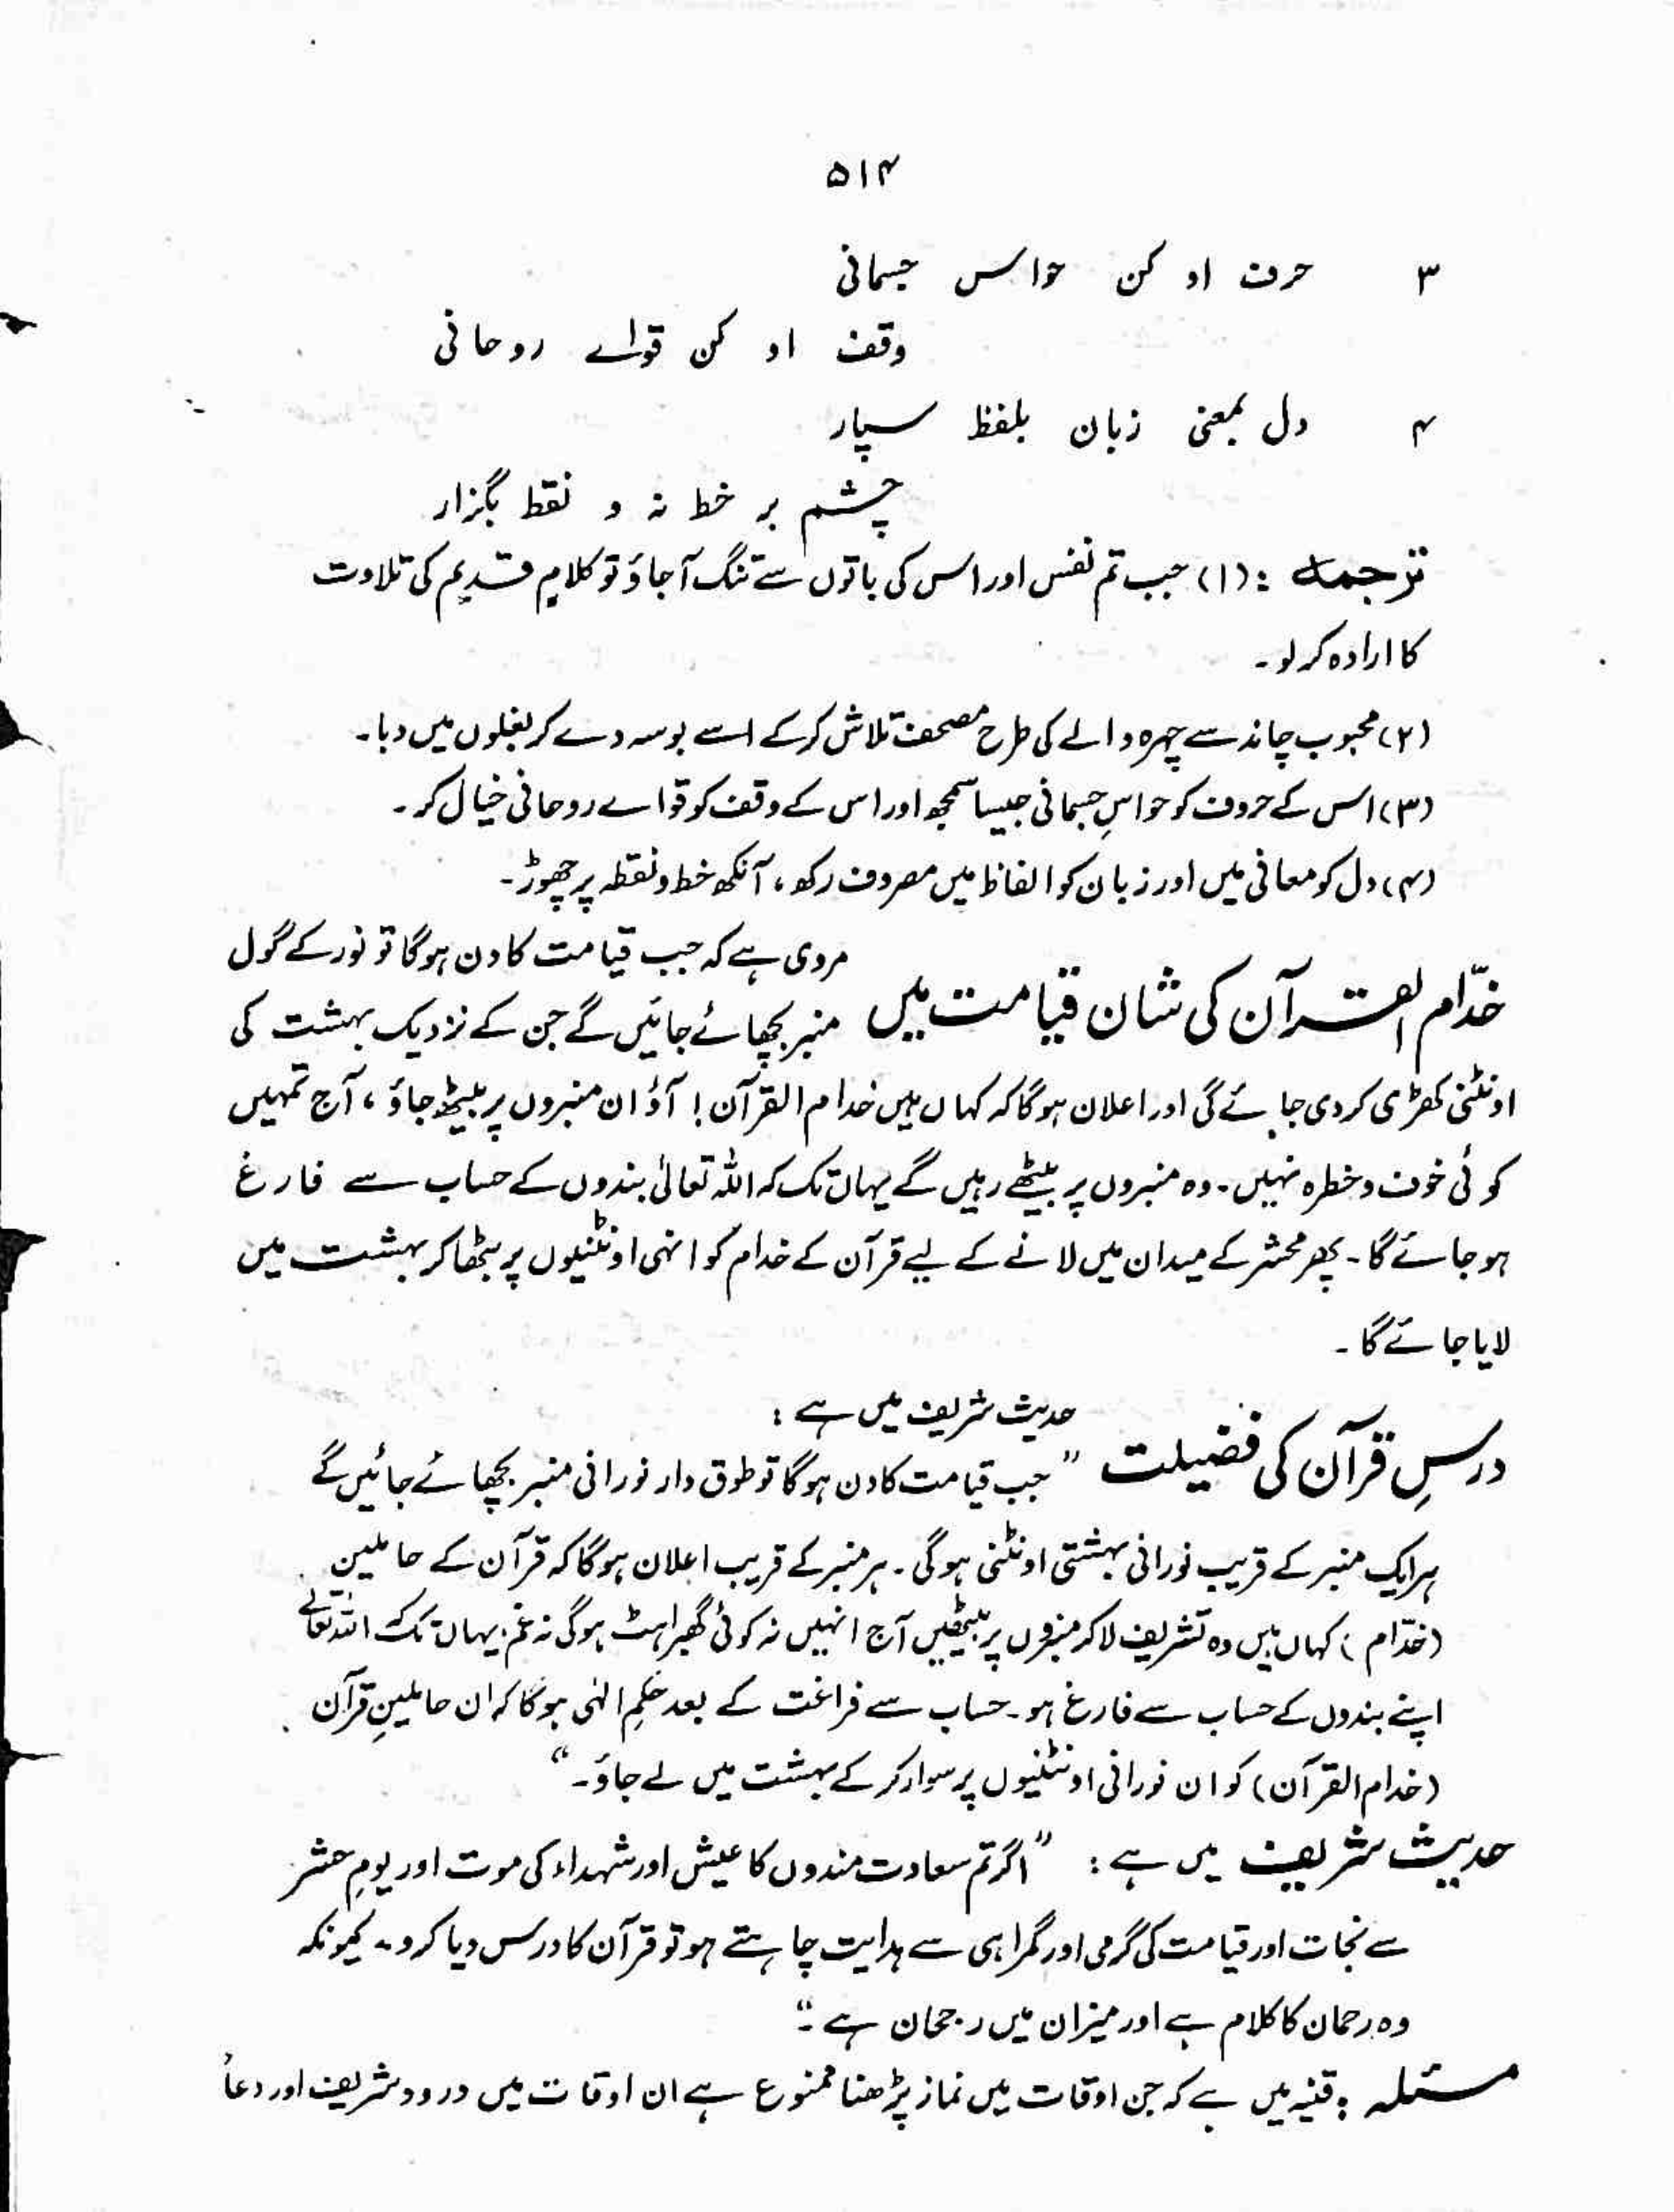 ۵۱۴
۳ حرف او کن حواس جسمانی
وقف او کن قواے روحانی
۴ دل بمعنی زبان بلفظ سپار
چشم بر خط نہ و نقط بگزار
ترجمہ : (۱) جب تم نفس اور اس کی باتوں سے تنگ آجاؤ تو کلامِ قدیم کی تلاوت
کا ارادہ کر لو۔
(۲) محبوب چاند سے چہرہ والے کی طرح مصحف تلاش کرکے اسے بوسہ دے کر بغلوں میں دبا۔
(۳) اس کے حروف کو حواسِ جسمانی جیسا سمجھ اور اس کے وقف کو قواے روحانی خیال کر۔
(۴) دل کو معانی میں اور زبان کو الفاظ میں مصروف رکھ، آنکھ خط و نقطہ پر چھوڑ۔
خدّام القرآن کی شان قیامت میں مروی ہے کہ جب قیامت کا دن ہوگا تو نور کے گول
منبر بچھائے جائیں گے جن کے نزدیک بہشت کی
اونٹنی کھڑی کردی جائے گی اور اعلان ہوگا کہ کہاں ہیں خدام القرآن! آؤ ان منبروں پر بیٹھ جاؤ، آج تمہیں
کوئی خوف و خطرہ نہیں۔ وہ منبروں پر بیٹھے رہیں گے یہاں تک کہ اللہ تعالیٰ بندوں کے حساب سے فارغ
ہو جائے گا۔ پھر محشر کے میدان میں لانے کے لیے قرآن کے خدام کو انہی اونٹنیوں پر بٹھا کر بہشت میں
لایا جائے گا۔
درسِ قرآن کی فضیلت حدیث شریف میں ہے :
"جب قیامت کا دن ہوگا تو طوق دار نورانی منبر بچھائے جائیں گے
ہر ایک منبر کے قریب نورانی بہشتی اونٹنی ہوگی۔ ہر منبر کے قریب اعلان ہوگا کہ قرآن کے حاملین
(خدّام) کہاں ہیں وہ تشریف لاکر منبروں پر بیٹھیں آج انہیں نہ کوئی گھبراہٹ ہوگی نہ غم، یہاں تک اللہ تعالٰے
اپنے بندوں کے حساب سے فارغ ہو۔ حساب سے فراغت کے بعد حکمِ الٰہی ہوگا کہ ان حاملینِ قرآن
(خدام القرآن) کو ان نورانی اونٹنیوں پر سوار کرکے بہشت میں لے جاؤ۔"
حدیث شریف میں ہے : "اگر تم سعادت مندوں کا عیش اور شہداء کی موت اور یومِ حشر
سے نجات اور قیامت کی گرمی اور گمراہی سے ہدایت چاہتے ہو تو قرآن کا درس دیا کرو۔ کیونکہ
وہ رحمان کا کلام ہے اور میزان میں رجحان ہے۔"
مسئلہ : قنیہ میں ہے کہ جن اوقات میں نماز پڑھنا ممنوع ہے ان اوقات میں درود شریف اور دعا